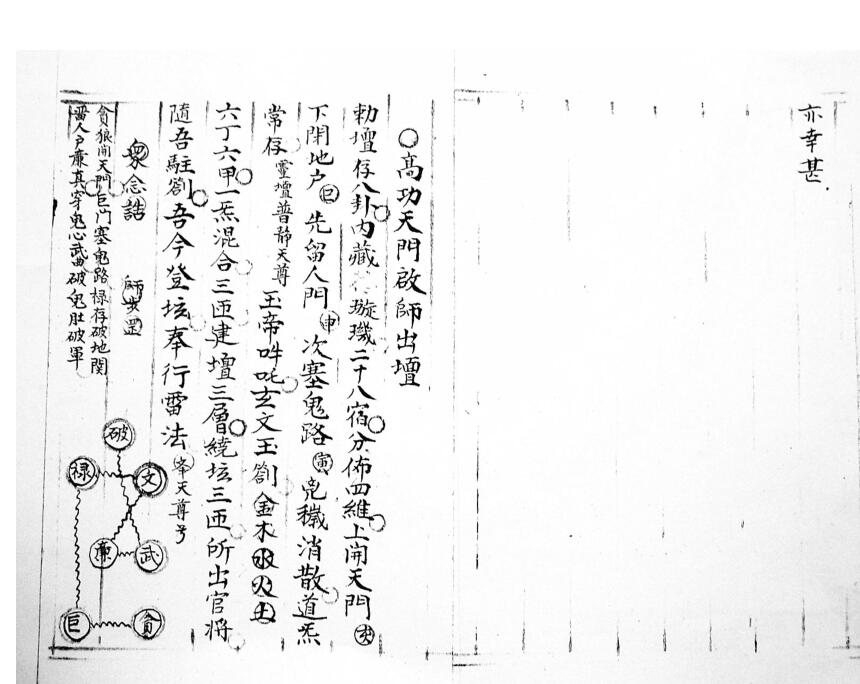 亦幸甚.
○高功天門啟師出壇
勅壇存八卦内藏璇璣二十八宿分佈四維上開天門
下閉地户巳先留人門申次塞鬼路寅兇穢消散道炁
常存靈壇普静天尊玉帝吽吒玄文玉劄金木水火土
六丁六甲一炁混合三匝建壇三層繞坛三匝所出官将
隨吾駐劄吾今登坛奉行雷法举天尊号
衆念誥 師步罡
貪狼開天門巨门塞鬼路禄存破地関
當人户廉真穿鬼心武曲破鬼肚破軍
破
禄 文
廉 武
巨 貪